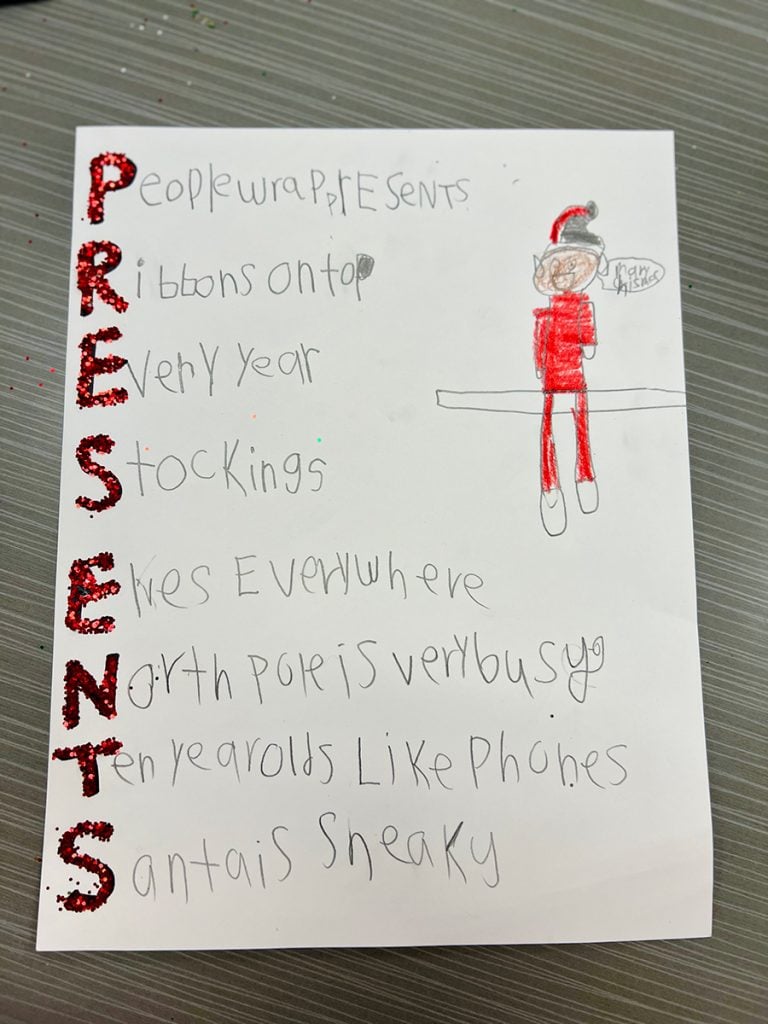 PeoplewrapprESENTS
Ribbons on top
Every year
Stockings
Elves Everywhere
North pole is very busy
Ten year olds Like Phones
Santa is Sneaky
mary